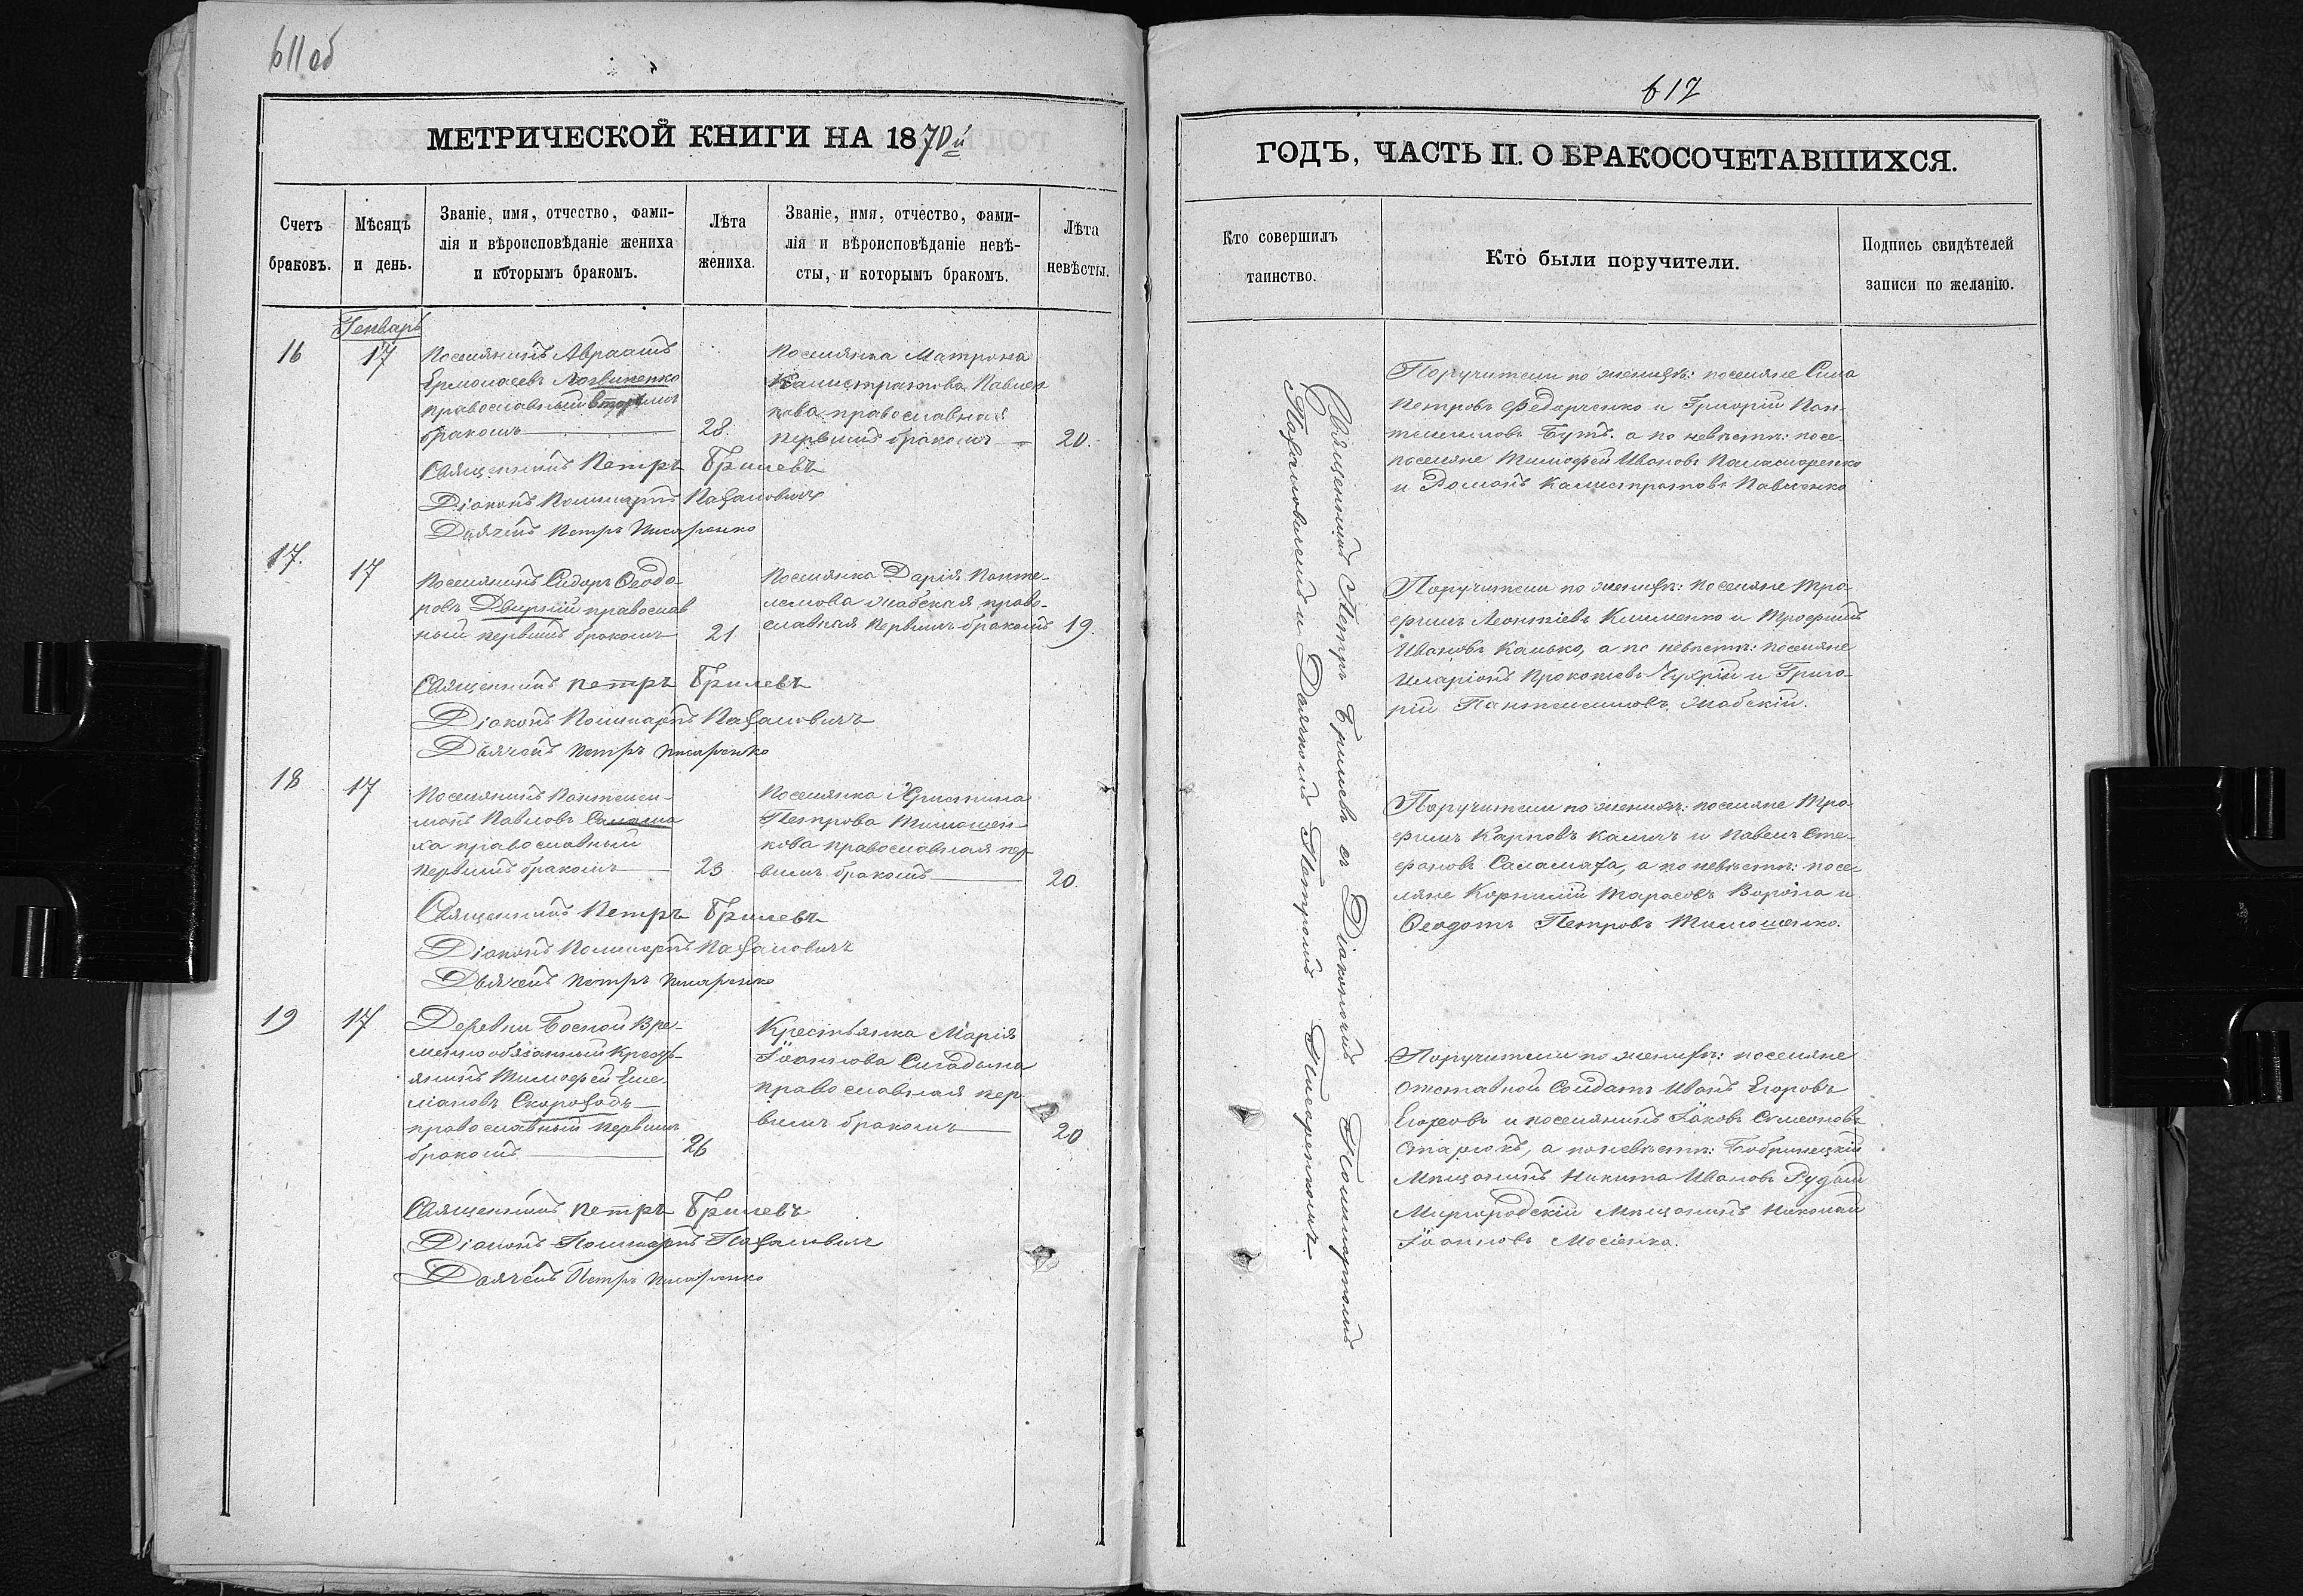 611 об
МЕТРИЧЕСКОЙ КНИГИ НА 1870й
Счетъ браковъ.
Мѣсяцъ и день.
Званіе, имя, отчество, фами-
лія и вѣроисповѣданіе жениха
и которымъ бракомъ.
Лѣта жениха.
Званіе, имя, отчество, фами-
лія и вѣроисповѣданіе невѣ-
сты, и которымъ бракомъ.
Лѣта невѣсты.
Генварь
16
17
Поселянинъ Авраамъ
Ермолаевъ Логвиненко
православный вторымъ
бракомъ
28.
Поселянка Матрона
Калистратова Павлен
кова православная
первымъ бракомъ
20.
Священникъ Петръ Брилевъ
Діаконъ Поликарпъ Пафаловичъ
Дьячекъ Петръ Писаренко
17.
17
Поселянинъ Сидоръ Ѳеодо-
ровъ Двирний православ
ный первымъ бракомъ
21
Поселянка Дарія Панте-
леимова православная первымъ бракомъ
19.
Священникъ Петръ Брилевъ
Діаконъ Поликарпъ Пафаловичъ
Дьячекъ Петръ Писаренко
18
17
Поселянинъ Пантелеи-
монъ Павловъ Салама
ха православный
первымъ бракомъ
23
Поселянка Христина
Петрова Тимошен-
кова православная пер
вымъ бракомъ
20.
Священникъ Петръ Брилевъ
Діаконъ Поликарпъ Пафаловичъ
Дьячекъ Петръ Писаренко
19
17
Деревни Вре-
менно обязанный Кресть-
янинъ Тимофей Еме-
ліановъ Скороходъ
православный первымъ
бракомъ
26
Крестьянка Марія
Іоаннова
православная пер
вымъ бракомъ
20
Священникъ Петръ Брилевъ
Діаконъ Поликарпъ Пафаловичъ
Дьячекъ Петръ Писаренко
612
ГОДЪ, ЧАСТЬ II. О БРАКОСОЧЕТАВШИХСЯ.
Кто совершилъ таинство.
Кто были поручители.
Подпись свидѣтелей
записи по желанію.
Священникъ Петръ Брилевъ съ Діакономъ Поликарпомъ
Пафаловичемъ и Дьячкомъ Петромъ Писаренкомъ.
Поручители по женихѣ: поселяне Сила
Петровъ Федорченко и Григорій Пан-
телимовъ Бутъ. а по невѣстѣ: посе-
поселяне Тимофей Ивановъ Паламаренко
и Романъ Калистратовъ Павленко
Поручители по женихѣ: поселяне Тро-
фимъ Леонтіевъ Клименко и Трофимъ
Ивановъ Калько, а по невѣстѣ: поселяне
Иларіонъ Прокопіевъ Чухрій и Григо-
рій Пантелеимовъ
Поручители по женихѣ: поселяне Тро-
фимъ Карповъ и Павелъ Сте-
фановъ Саламаха, а по невѣстѣ: посе-
ляне Корнилій Тарасовъ Ворона и
Ѳеодотъ Петровъ Тимошенко.
Поручители по женихѣ: поселяне
отставной Солдатъ Иванъ Егоровъ
Егоровъ и поселянинъ Іаковъ Симеоновъ
а по невѣстѣ: Бобринецкій
Мѣщанинъ Никита Ивановъ Рудый
Миргородскій Мѣщанинъ Николай
Іоанновъ Мосіенко.